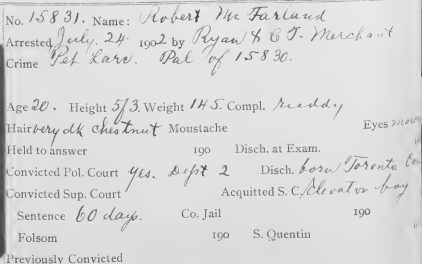 No. 15831. Name: Robert McFarland
Arrested July. 24 1902 by Ryan & C.T. Merchant
Crime Pet Larc. Pal of 15830.
Age 20. Height 5/3. Weight 145. Compl. ruddy
Hair very dk chestnut Moustache Eyes
Held to answer 190 Disch. at Exam.
Convicted Pol. Court yes. Dept 2 Disch. born Toronto
Convicted Sup. Court Acquitted S. C. Elevator boy
Sentence 60 days. Co. Jail 190
Folsom 190 S. Quentin
Previously Convicted